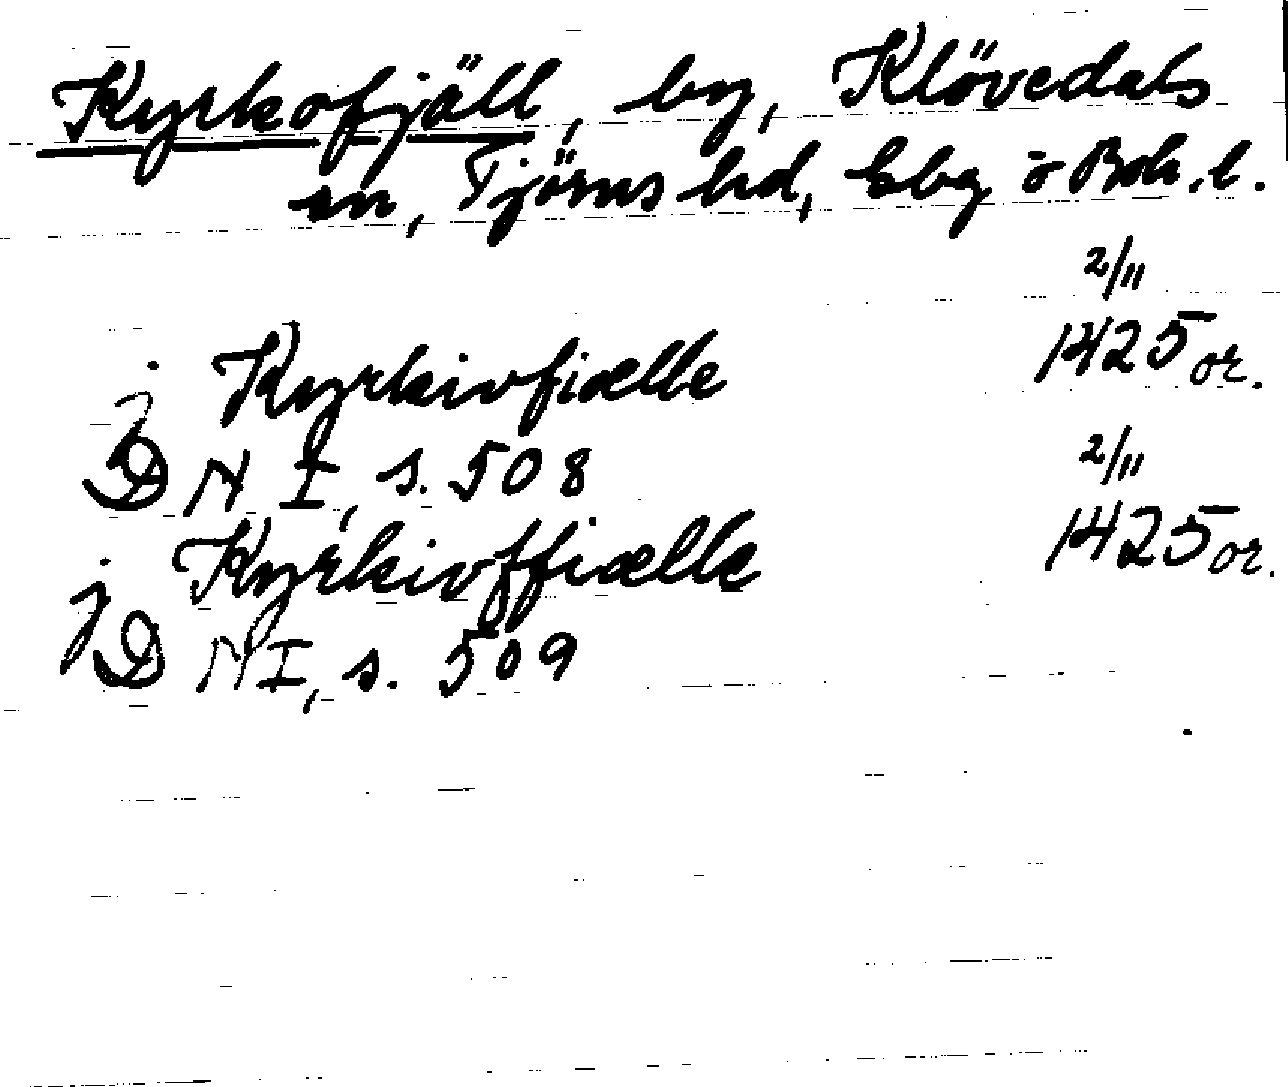 Kyrkofjäll, by, Klövedals
sn, Tjörns hd, Gbg o Boh. l.
2/11
j Kyrkiofiælle 1425 or.
DN I, s. 508
2/11
j Kyrkioffiælle 1425 or.
DN I, s. 509